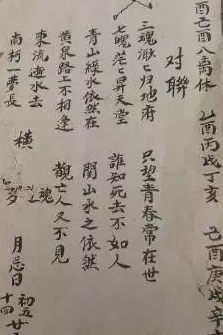 酉己酉八离休
乙酉丙戌丁亥 己酉庚戌
对聯
三魂渺〻归地府 只望青春常在世
七魄茫〻昇天堂 誰知死去不如人
青山綠水依然在 関山水之依然
黄泉路上不相逢 觀亡人又不見
東流逝水去
南柯一夢長
横 魂
月忌日 初五 十四 廿